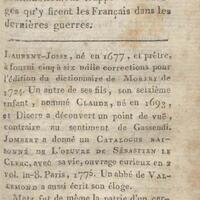 ges qu'y firent les Français dans les
dernières guerres.
LAURENT-JOSSE, né en 1677, et prêtre,
a fourni cinq à six mille corrections pour
l'édition du dictionnaire de MORERI de
1724. Un autre de ses fils, son seizième
enfant, nommé CLAUDE, né en 1693,
et Dicere a découvert un point de vue
contraire au sentiment de Gassendi.
JOMBERT a donné un CATALOGUE RAI-
SONNÉ DE L'OEUVRE DE SÉBASTIEN LE
CLERC, avec sa vie, ouvrage curieux en 2
vol. in-8. Paris, 1775. Un abbé de VAL-
LEMOND a aussi écrit son éloge.
Metz fut de même la patrie d'un cer-